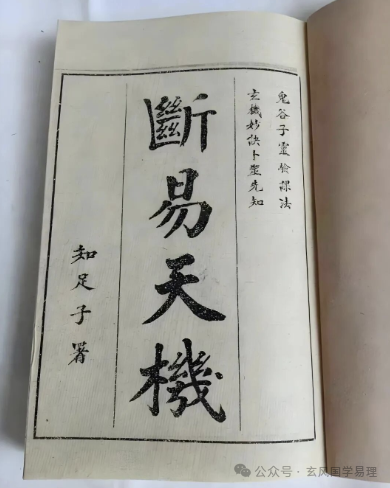 鬼谷子靈驗課法
玄機妙訣卜蓍先知
斷易天機
知足子署
公众号·玄风国学易理